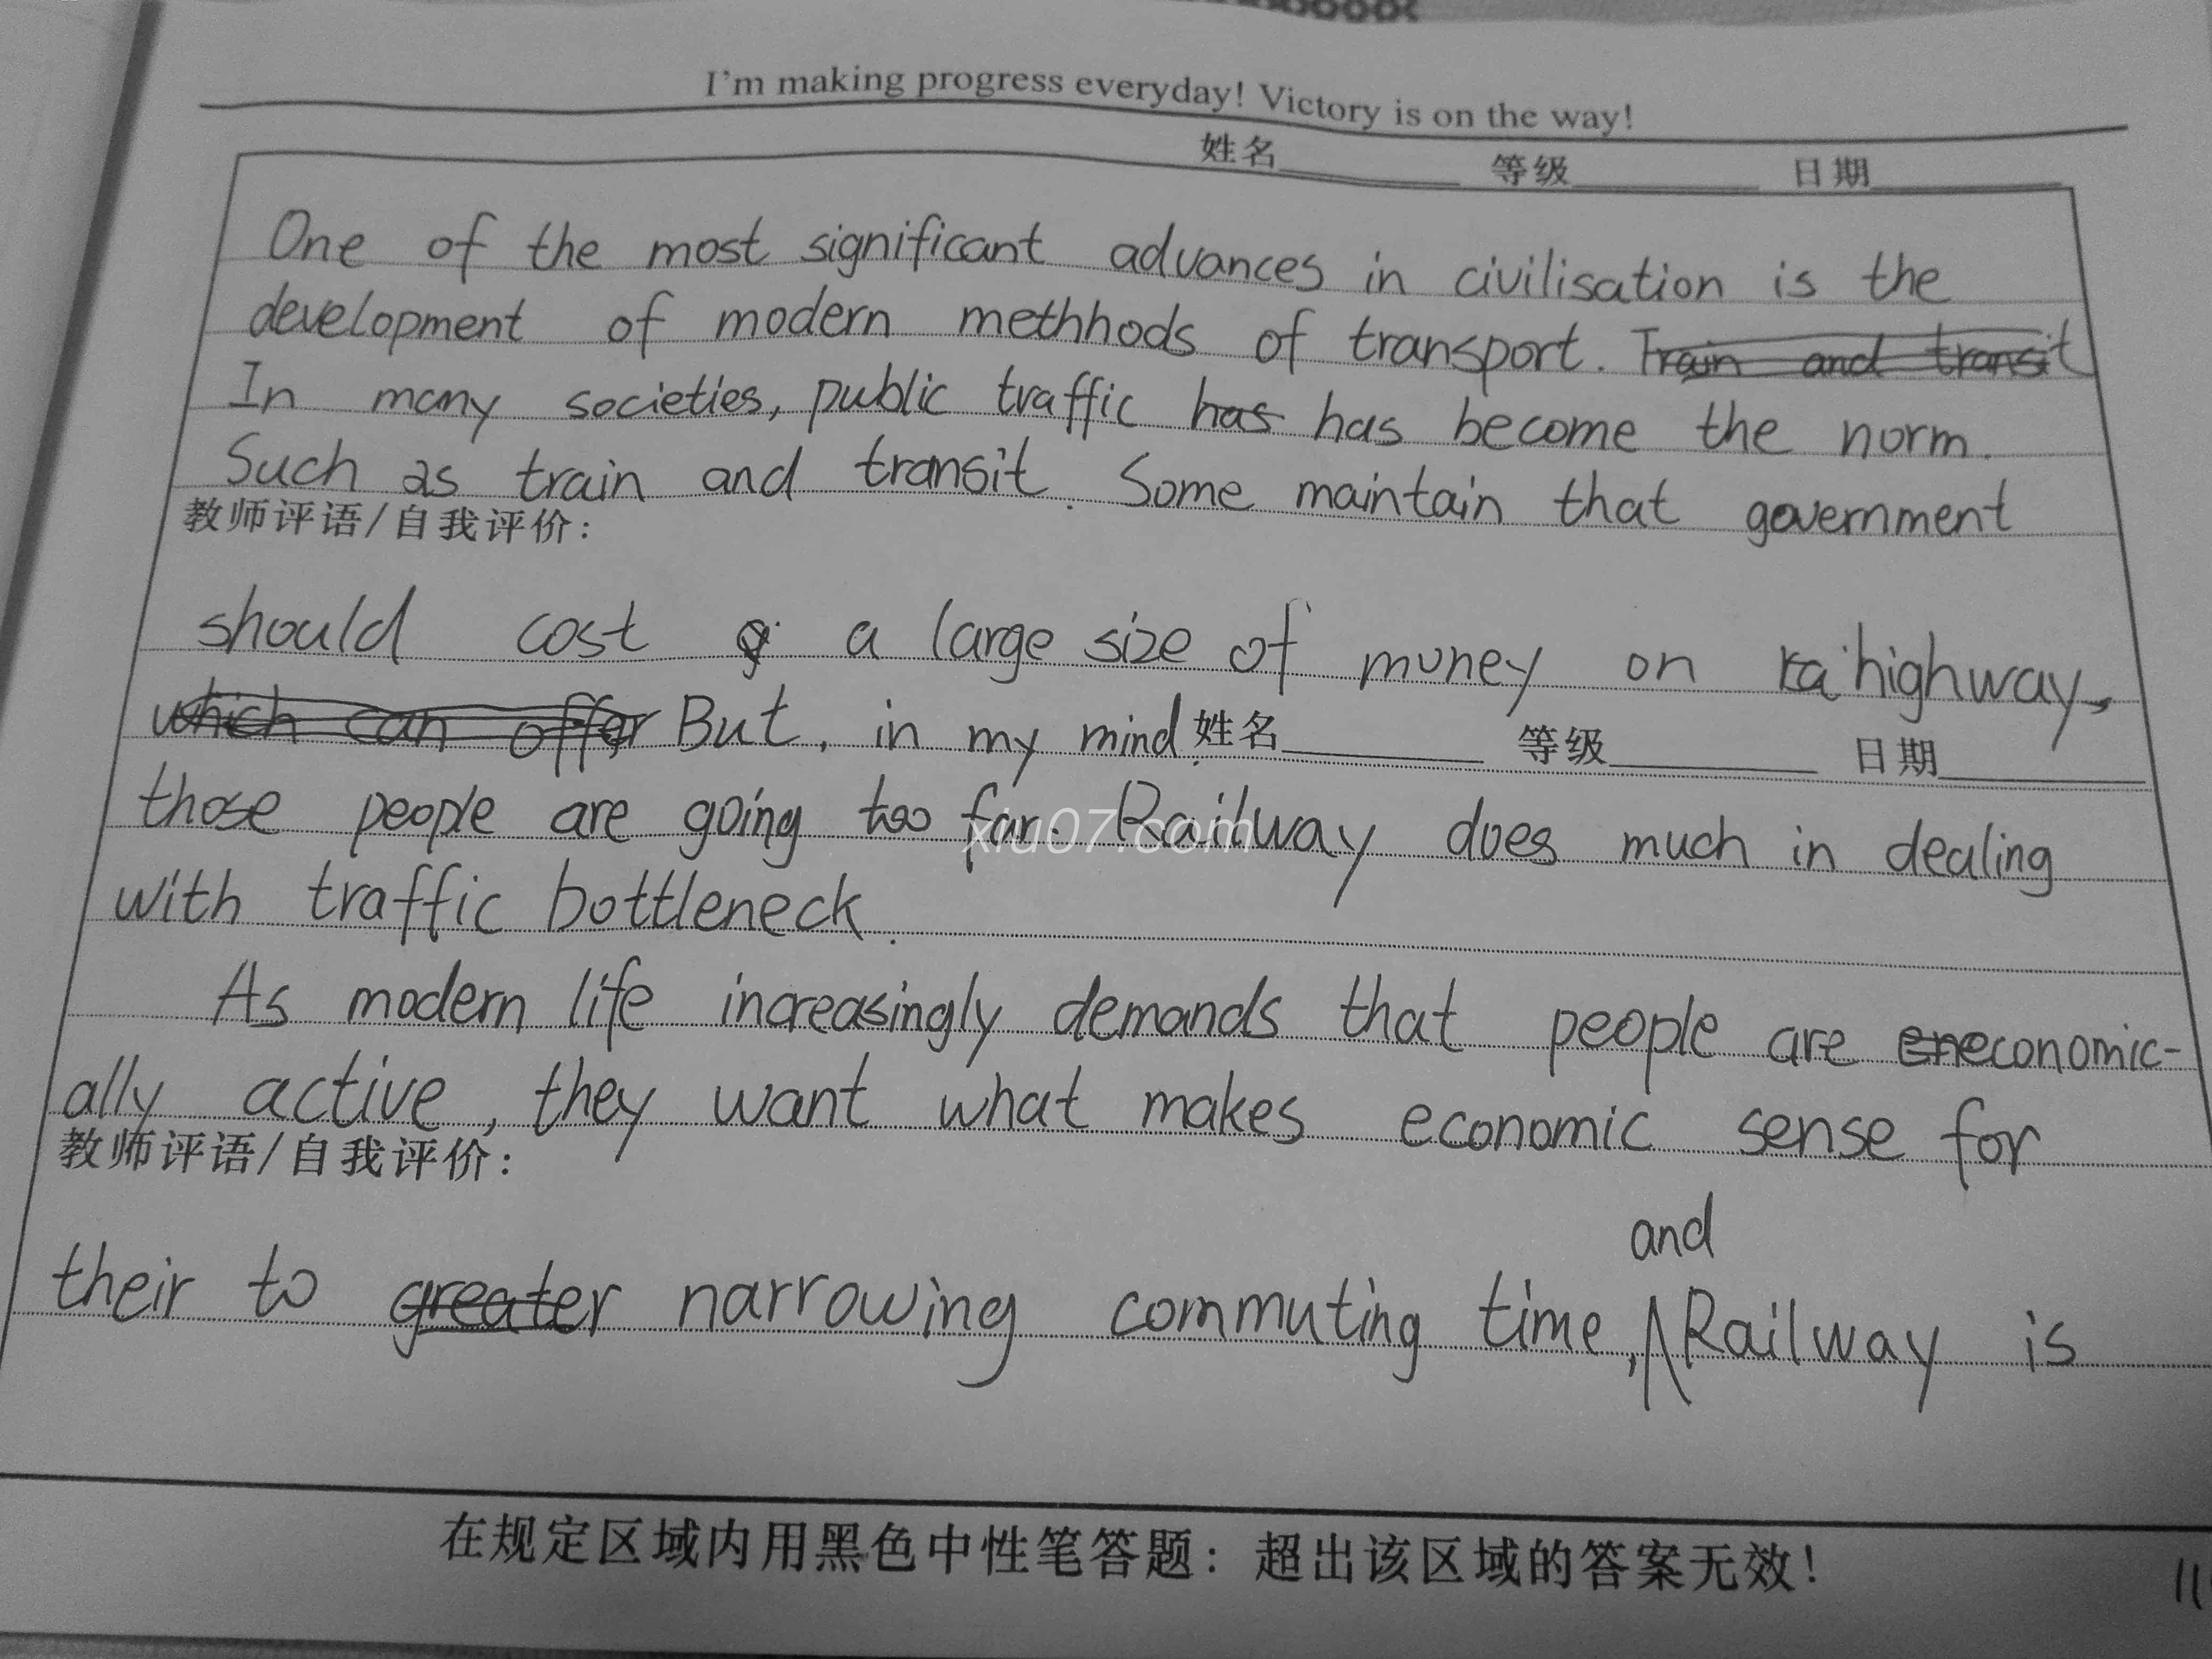 I'm making progress everyday! Victory is on the way!
姓名 等级 日期
One of the most significant advances in civilisation is the
development of modern methhods of transport. Train and transit
In many societies, public traffic has has become the norm.
Such as train and transit. Some maintain that government
教师评语/自我评价:
should cost a large size of money on ra highway,
which can offer But, in my mind.
姓名 等级 日期
those people are going too far. Railway does much in dealing
xiu07.com
with traffic bottleneck.
As modern life increasingly demands that people are eneconomic-
ally active, they want what makes economic sense for
教师评语/自我评价:
and
their to greater narrowing commuting time, Railway is
在规定区域内用黑色中性笔答题: 超出该区域的答案无效!